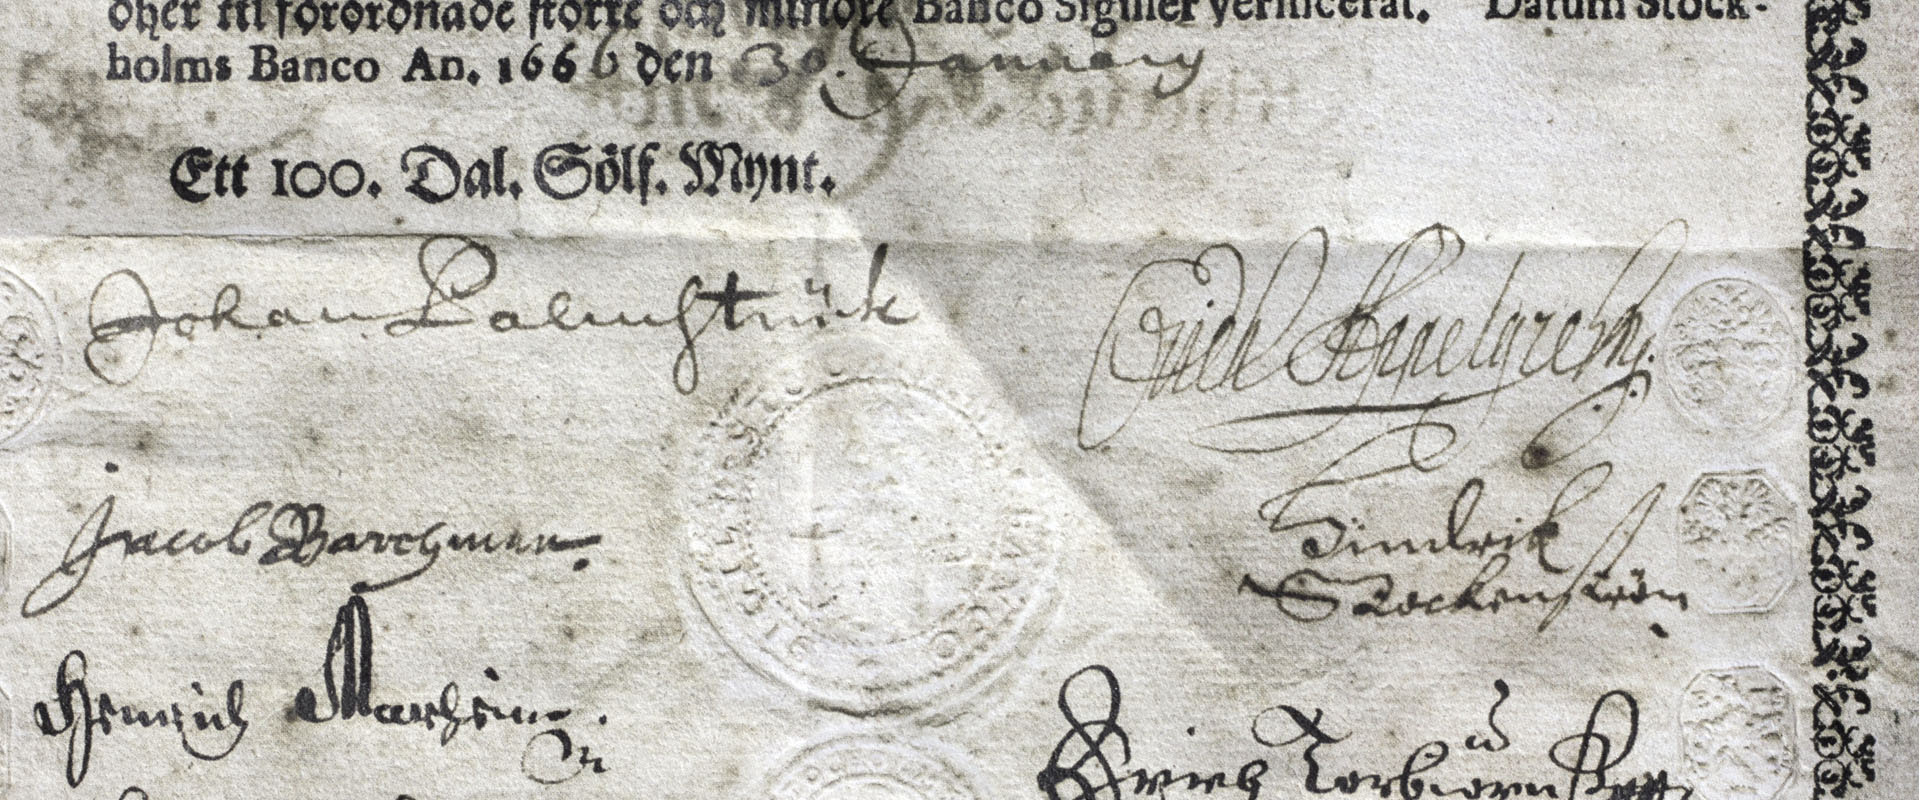 öher til förordnade större och mindre Banco Signer verificerat. Datum Stock-
holms Banco An. 1666 den 30. January
Ett 100. Dal. Sölf. Mynt.
Johan Palmstruck
Jacob Barchman.
Hindrik
Stockenström
Henrich Marhein